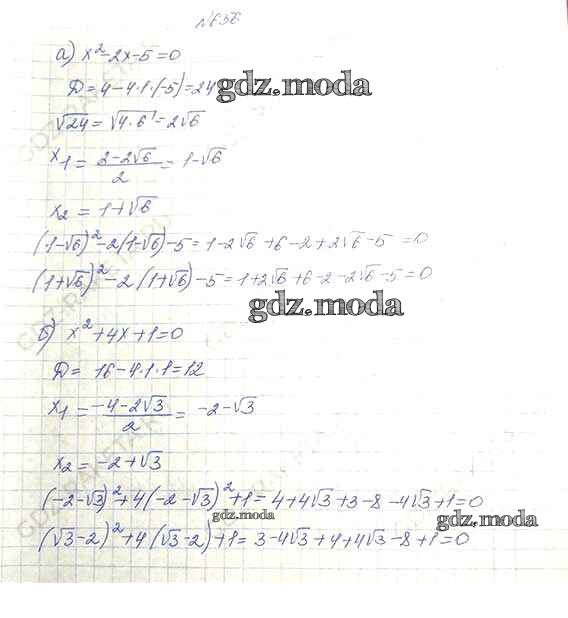 №656
а) x² - 2x - 5 = 0
Д = 4 - 4·1·(-5) = 24
gdz.moda
√24 = √4·6 = 2√6
x1 = (2 - 2√6)/2 = 1 - √6
x2 = 1 + √6
(1-√6)² - 2(1-√6) - 5 = 1 - 2√6 + 6 - 2 + 2√6 - 5 = 0
(1+√6)² - 2(1+√6) - 5 = 1 + 2√6 + 6 - 2 - 2√6 - 5 = 0
gdz.moda
б) x² + 4x + 1 = 0
Д = 16 - 4·1·1 = 12
x1 = (-4 - 2√3)/2 = -2 - √3
x2 = -2 + √3
(-2-√3)² + 4(-2-√3) + 1 = 4 + 4√3 + 3 - 8 - 4√3 + 1 = 0
gdz.moda
gdz.moda
(√3-2)² + 4(√3-2) + 1 = 3 - 4√3 + 4 + 4√3 - 8 + 1 = 0